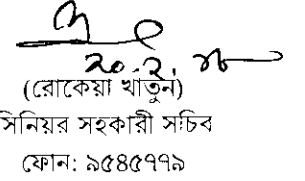 ২০.২.১৮
(রোকেয়া খাতুন)
সিনিয়র সহকারী সচিব
ফোন: ৯৫৪৫৭৭৯